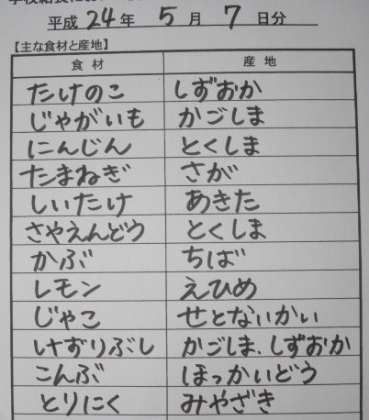 平成 24 年 5 月 7 日分
【主な食材と産地】
食材 産地
たけのこ しずおか
じゃがいも かごしま
にんじん とくしま
たまねぎ さが
しいたけ あきた
さやえんどう とくしま
かぶ ちば
レモン えひめ
じゃこ せとないかい
けずりぶし かごしま、しずおか
こんぶ ほっかいどう
とりにく みやざき